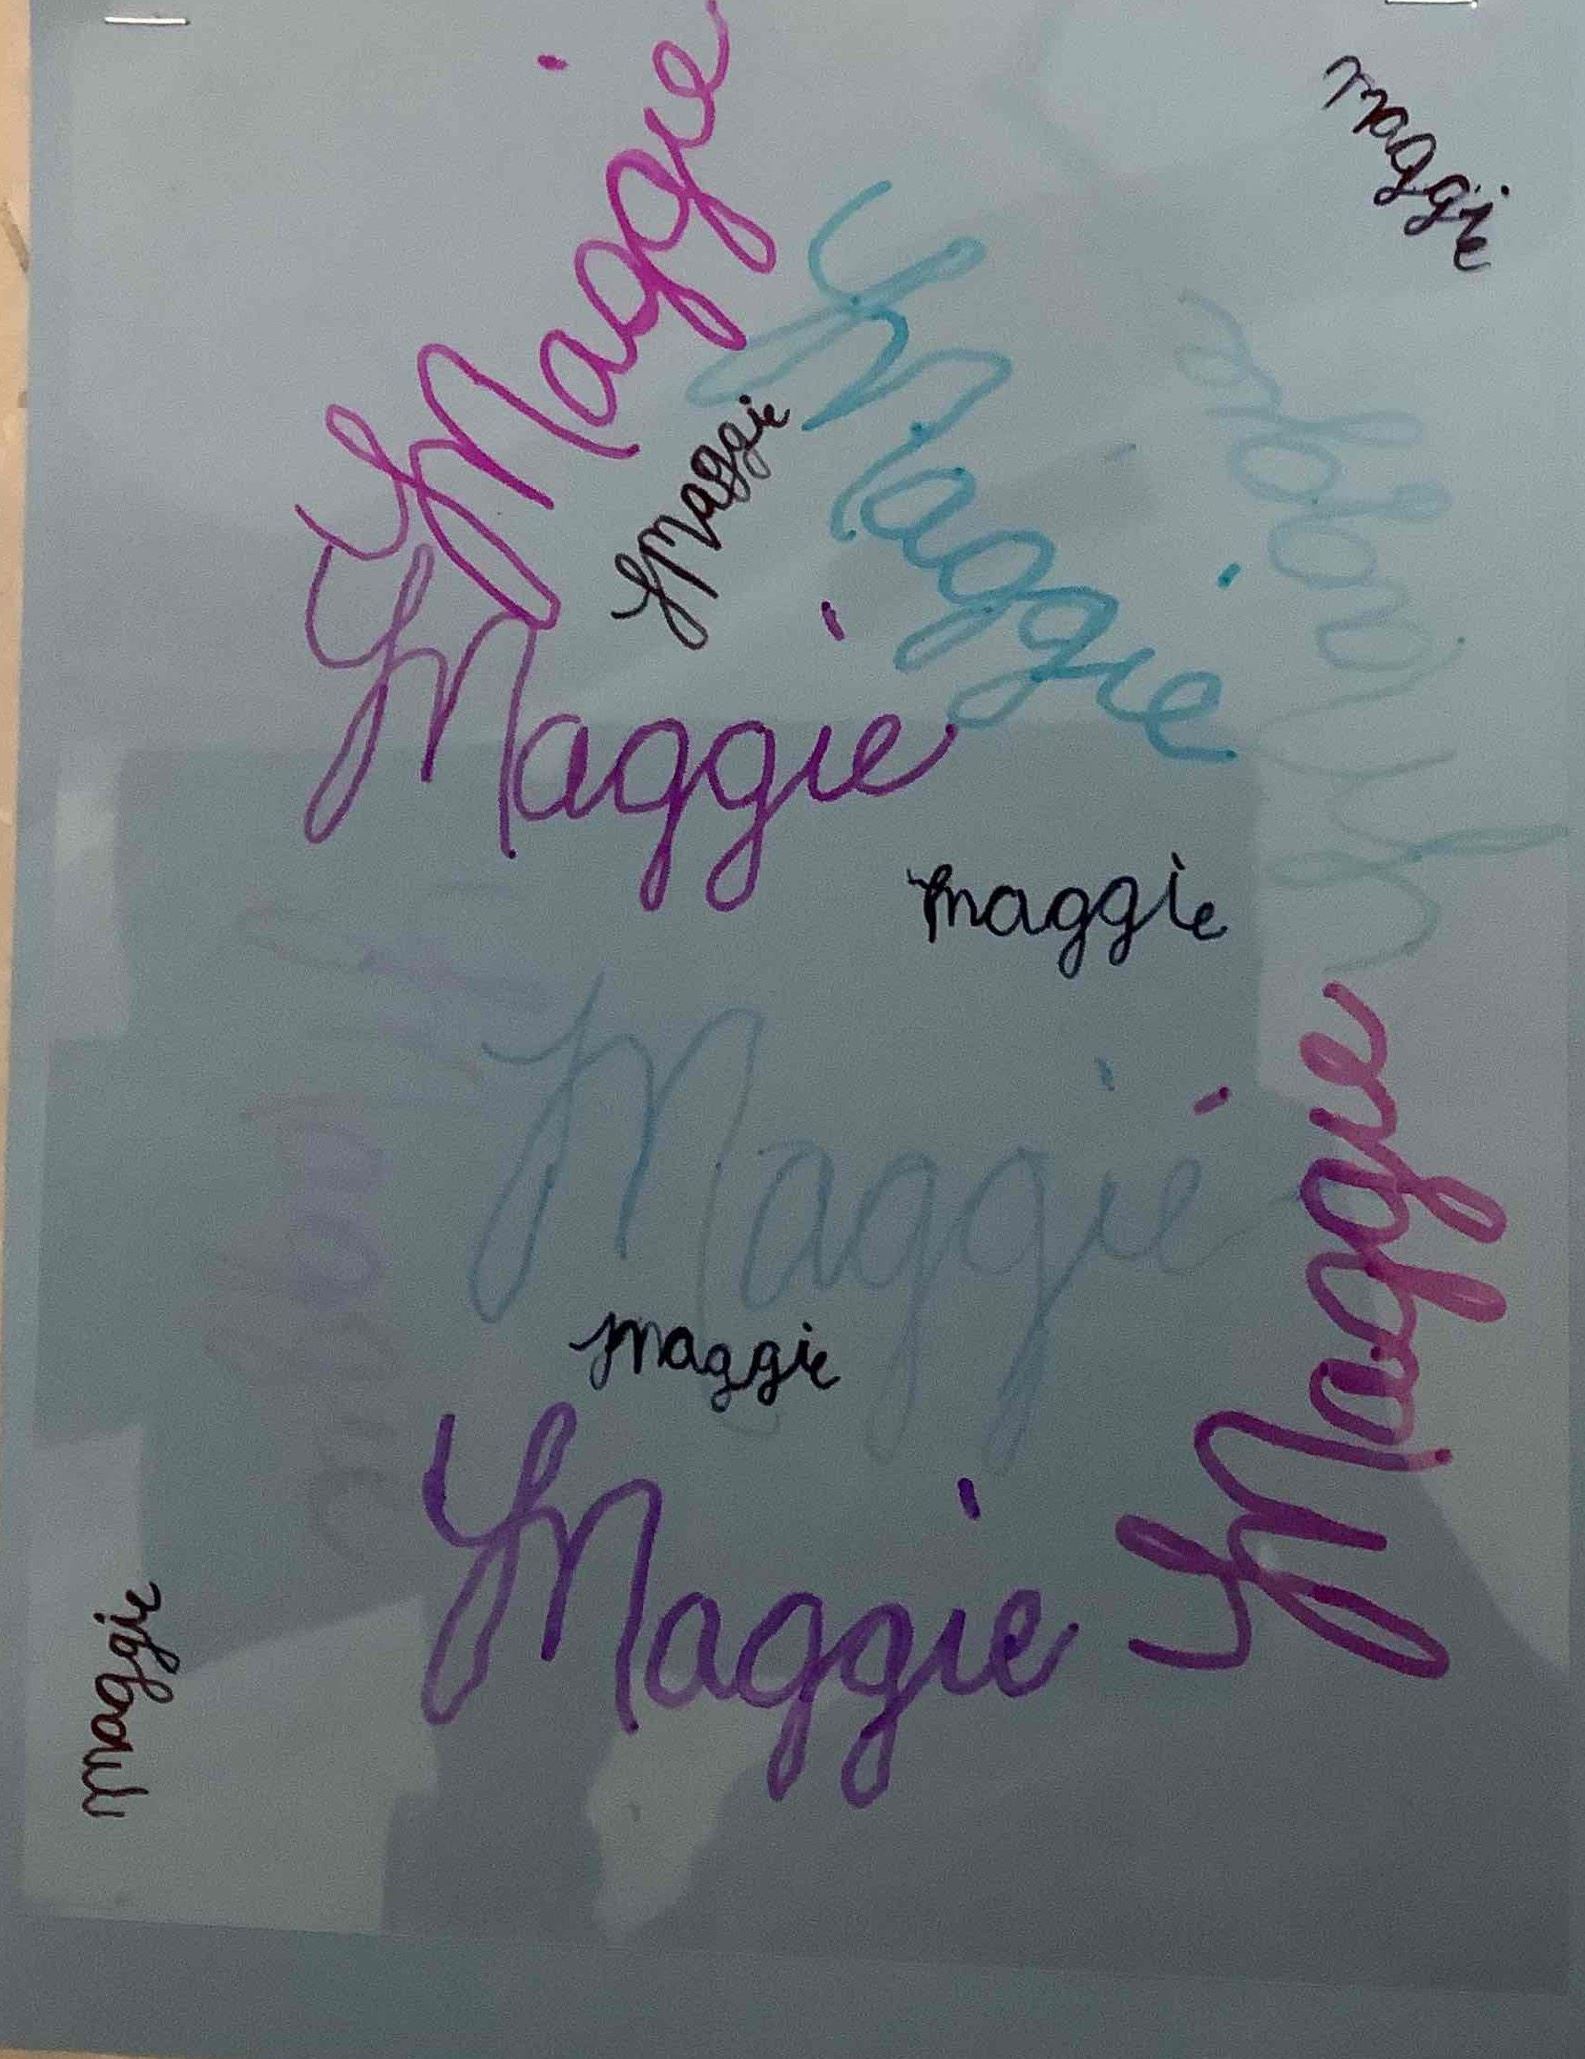 Maggie
maggie
Maggie
Maggie
Maggie
Maggie
maggie
Maggie
Maggie
maggie
Maggie
maggie